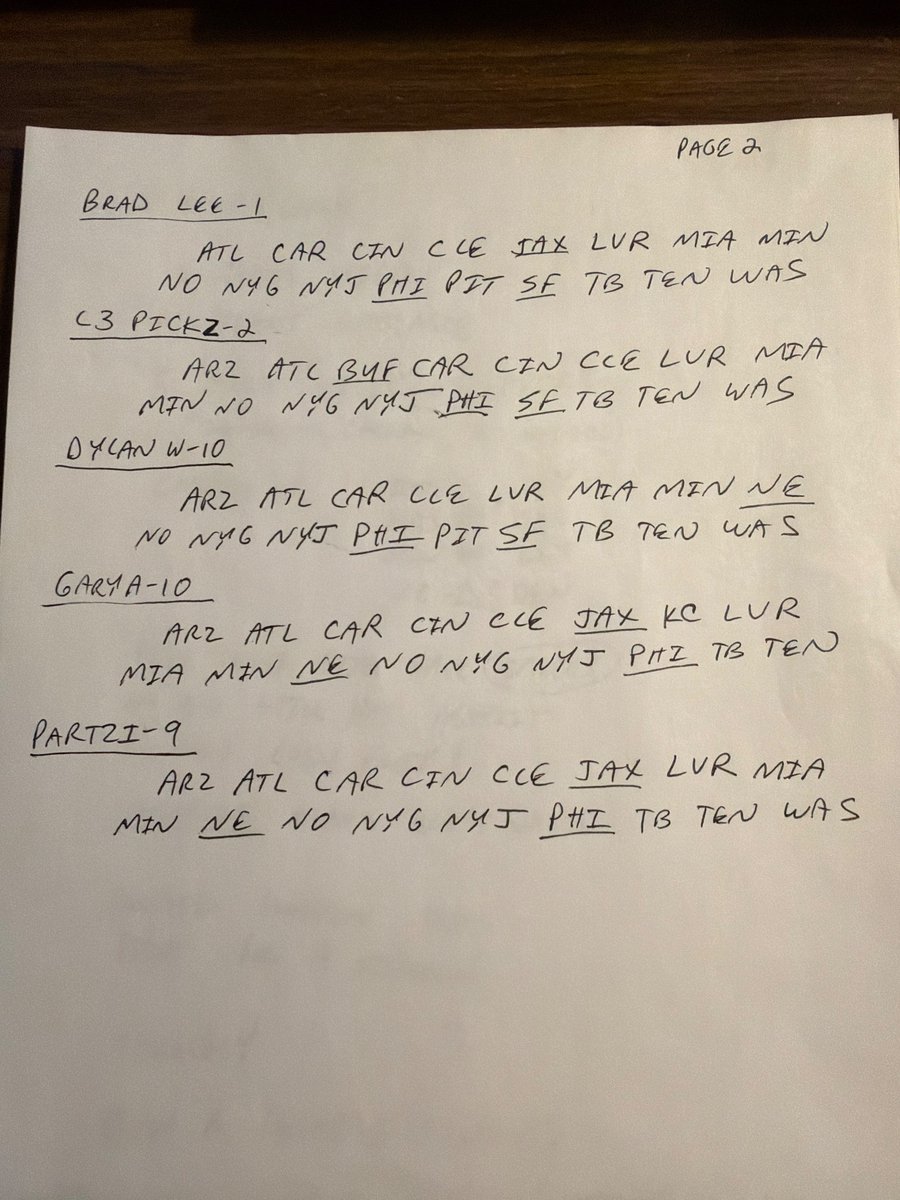 PAGE 2
BRAD LEE-1
ATL CAR CIN CLE JAX LVR MIA MIN
NO NYG NYJ PHI PIT SF TB TEN WAS
C3 PICKZ-2
ARZ ATL BUF CAR CIN CLE LVR MIA
MIN NO NYG NYJ PHI SF TB TEN WAS
DYLAN W-10
ARZ ATL CAR CLE LVR MIA MIN NE
NO NYG NYJ PHI PIT SF TB TEN WAS
GARY A-10
ARZ ATL CAR CIN CLE JAX KC LVR
MIA MIN NE NO NYG NYJ PHI TB TEN
PARTZI-9
ARZ ATL CAR CIN CLE JAX LVR MIA
MIN NE NO NYG NYJ PHI TB TEN WAS